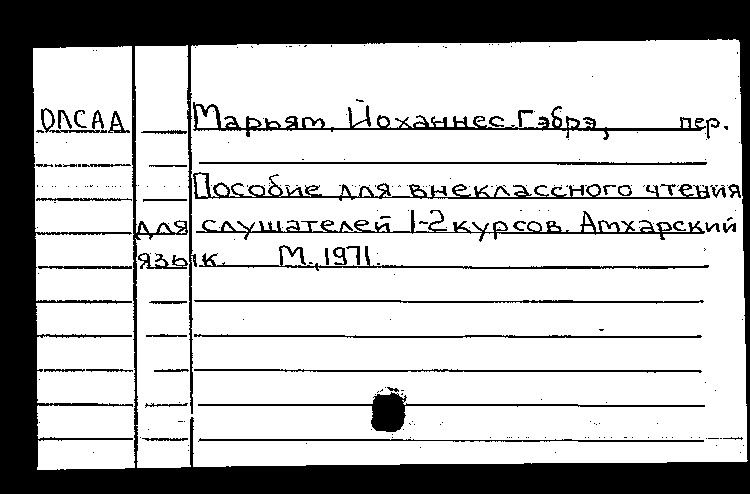 ОЛСАА Марьям, Йоханнес Гэбрэ, пер.
Пособие для внеклассного чтения
для слушателей 1-2 курсов. Амхарский
язык. М., 1971.